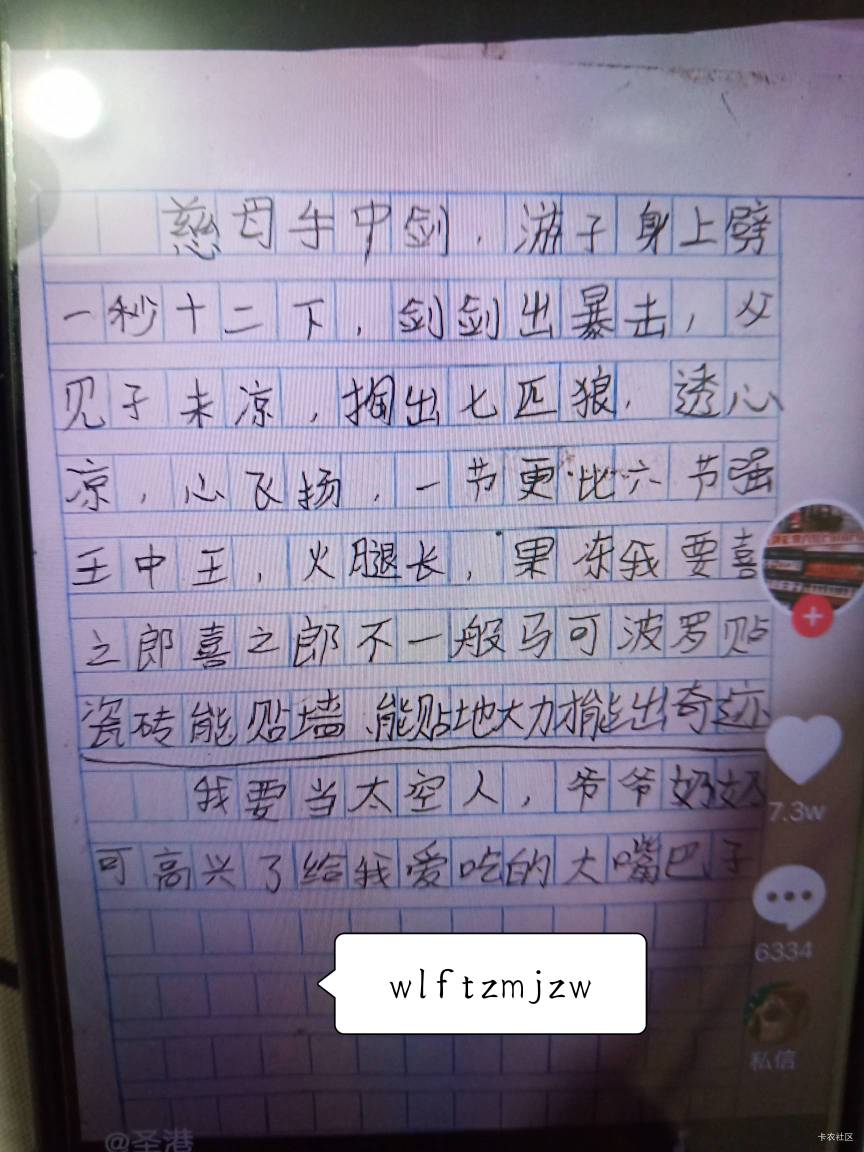 慈母手中剑，游子身上劈
一秒十二下，剑剑出暴击，父
见子未凉，掏出七匹狼，透心
凉，心飞扬，一节更比六节强
王中王，火腿长，果冻我要喜
之郎喜之郎不一般马可波罗贴
瓷砖能贴墙、能贴地大力才能出奇迹
我要当太空人，爷爷奶奶
可高兴了给我爱吃的大嘴巴子
7.3w
wlftzmjzw
6334
私信
@圣港
卡农社区